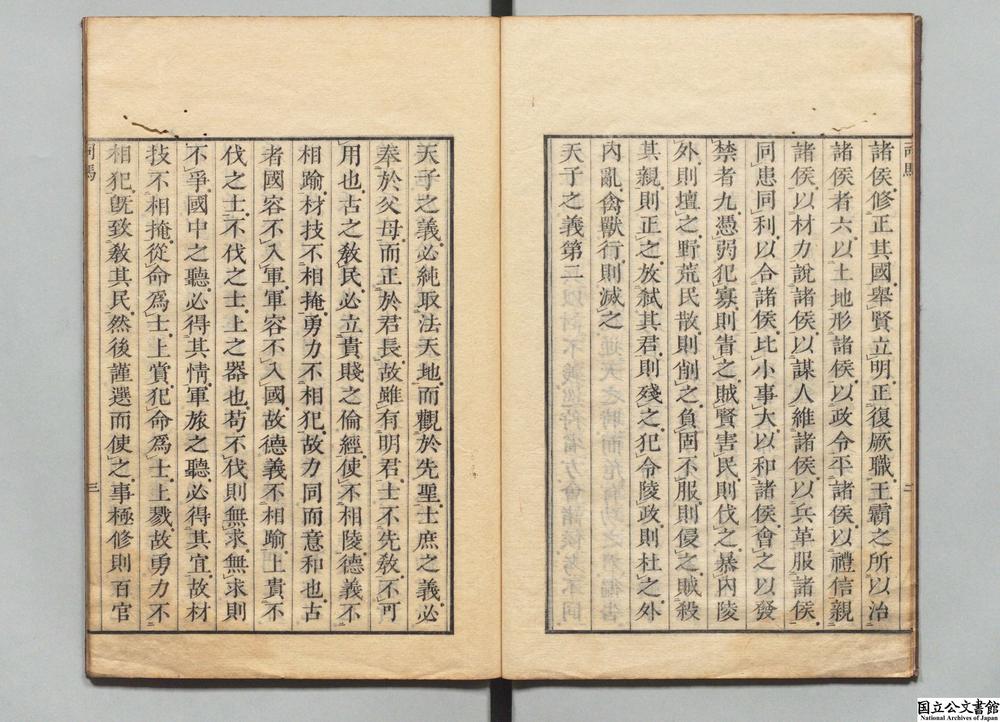 諸侯修正其國擧賢立明正復厥職王霸之所以治
諸侯者六以土地形諸侯以政令平諸侯以禮信親
諸侯以材力說諸侯以謀人維諸侯以兵革服諸侯
同患同利以合諸侯比小事大以和諸侯會之以發
禁者九憑弱犯寡則眚之賊賢害民則伐之暴內陵
外則壇之野荒民散則削之負固不服則侵之賊殺
其親則正之放弑其君則殘之犯令陵政則杜之外
內亂禽獸行則滅之
天子之義第二
天子之義必純取法天地而觀於先聖士庶之義必
奉於父母而正於君長故雖有明君士不先敎不可
用也古之敎民必立貴賤之倫經使不相陵德義不
相踰材技不相掩勇力不相犯故力同而意和也古
者國容不入軍軍容不入國故德義不相踰上貴不
伐之士不伐之士上之器也苟不伐則無求無求則
不爭國中之聽必得其情軍旅之聽必得其宜故材
技不相掩從命爲士上賞犯命爲士上戮故勇力不
相犯旣致敎其民然後謹選而使之事極修則百官
司馬
三
国立公文書館
National Archives of Japan